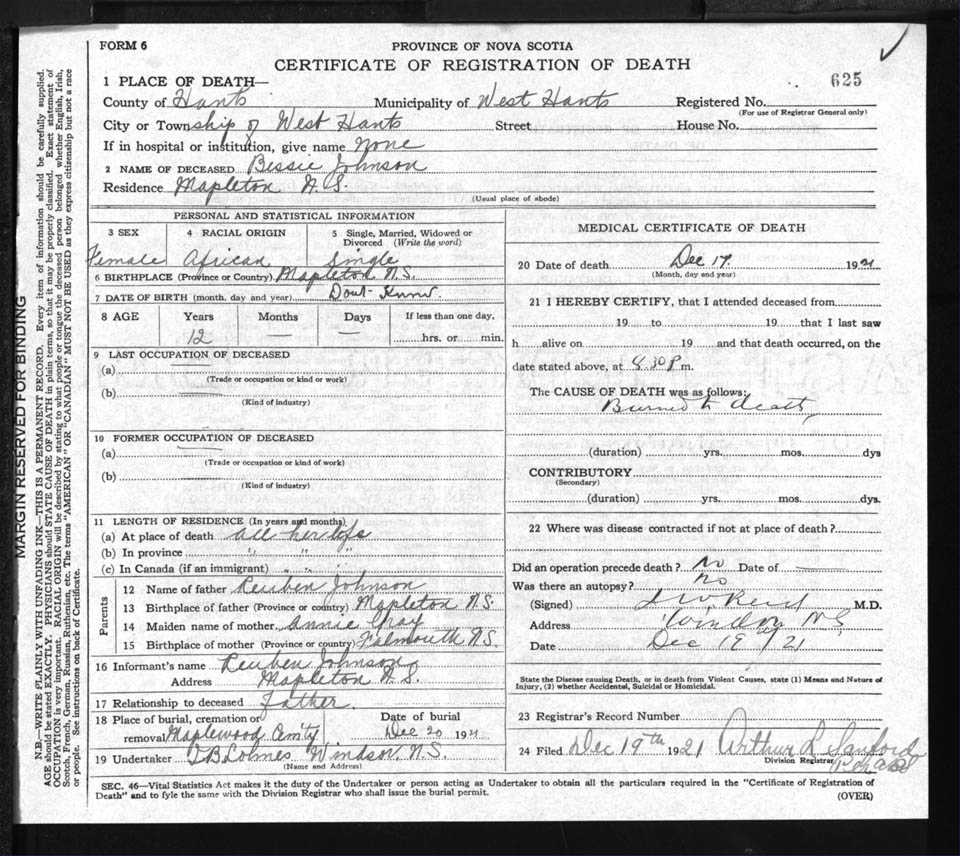 FORM 6
PROVINCE OF NOVA SCOTIA
CERTIFICATE OF REGISTRATION OF DEATH
625
1 PLACE OF DEATH—
County of Hants Municipality of West Hants Registered No.
(For use of Registrar General only)
City or Township of West Hants Street House No.
If in hospital or institution, give name None
2 NAME OF DECEASED Bessie Johnson
Residence Mapleton N.S.
(Usual place of abode)
MARGIN RESERVED FOR BINDING
N.B.—WRITE PLAINLY WITH UNFADING INK—THIS IS A PERMANENT RECORD. Every item of information should be carefully supplied.
AGE should be stated EXACTLY. PHYSICIANS should STATE CAUSE OF DEATH in plain terms, so that it may be properly classified. Exact statement of
OCCUPATION is very important. RACIAL ORIGIN will be described by stating to what people or tongue the deceased person belonged whether English, Irish,
Scotch, French, German, Russian, Ruthenian, etc. The terms "AMERICAN" OR "CANADIAN" MUST NOT BE USED as they express citizenship but not a race
or people. See instructions on back of Certificate.
PERSONAL AND STATISTICAL INFORMATION
3 SEX 4 RACIAL ORIGIN 5 Single, Married, Widowed or
Divorced (Write the word)
Female African Single
6 BIRTHPLACE (Province or Country) Mapleton N.S.
7 DATE OF BIRTH (month, day and year) Dont Know.
8 AGE Years Months Days If less than one day,
12 — — hrs. or min.
9 LAST OCCUPATION OF DECEASED
(a)
(Trade or occupation or kind or work)
(b)
(Kind of industry)
10 FORMER OCCUPATION OF DECEASED
(a)
(Trade or occupation or kind of work)
(b)
(Kind of industry)
11 LENGTH OF RESIDENCE (In years and months)
(a) At place of death all her life
(b) In province " " "
(c) In Canada (if an immigrant) " " "
Parents
12 Name of father Reuben Johnson
13 Birthplace of father (Province or country) Mapleton N.S.
14 Maiden name of mother Annie Gray
15 Birthplace of mother (Province or country) Falmouth N.S.
16 Informant's name Reuben Johnson
Address Mapleton N.S.
17 Relationship to deceased Father
18 Place of burial, cremation or Date of burial
removal Maplewood Cem'ty Dec 20 1921
19 Undertaker Windsor, N.S.
(Name and Address)
MEDICAL CERTIFICATE OF DEATH
20 Date of death Dec 17 1921
(Month, day and year)
21 I HEREBY CERTIFY, that I attended deceased from
19 to 19 that I last saw
h alive on 19 and that death occurred, on the
date stated above, at 4.30 P m.
The CAUSE OF DEATH was as follows:
Burned to death
(duration) yrs. mos. dys
CONTRIBUTORY
(Secondary)
(duration) yrs. mos. dys.
22 Where was disease contracted if not at place of death?
Did an operation precede death? No Date of
Was there an autopsy? No
(Signed) M.D.
Address Windsor NS
Date Dec 19 / 21
State the Disease causing Death, or in death from Violent Causes, state (1) Means and Nature of
Injury, (2) whether Accidental, Suicidal or Homicidal.
23 Registrar's Record Number
24 Filed Dec 19th 1921 Arthur L Sanford
Division Registrar
SEC. 46—Vital Statistics Act makes it the duty of the Undertaker or person acting as Undertaker to obtain all the particulars required in the "Certificate of Registration of
Death" and to fyle the same with the Division Registrar who shall issue the burial permit.
(OVER)